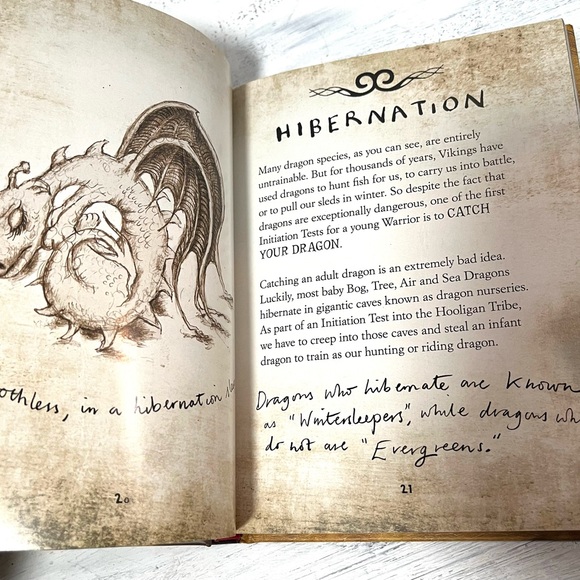 in a hibernation
20
HIBERNATION
Many dragon species, as you can see, are entirely
untrainable. But for thousands of years, Vikings have
used dragons to hunt fish for us, to carry us into battle,
or to pull our sleds in winter. So despite the fact that
dragons are exceptionally dangerous, one of the first
Initiation Tests for a young Warrior is to CATCH
YOUR DRAGON.
Catching an adult dragon is an extremely bad idea.
Luckily, most baby Bog, Tree, Air and Sea Dragons
hibernate in gigantic caves known as dragon nurseries.
As part of an Initiation Test into the Hooligan Tribe,
we have to creep into those caves and steal an infant
dragon to train as our hunting or riding dragon.
Dragons who hibernate are known
as "Wintersleepers", while dragons
do not are "Evergreens."
21